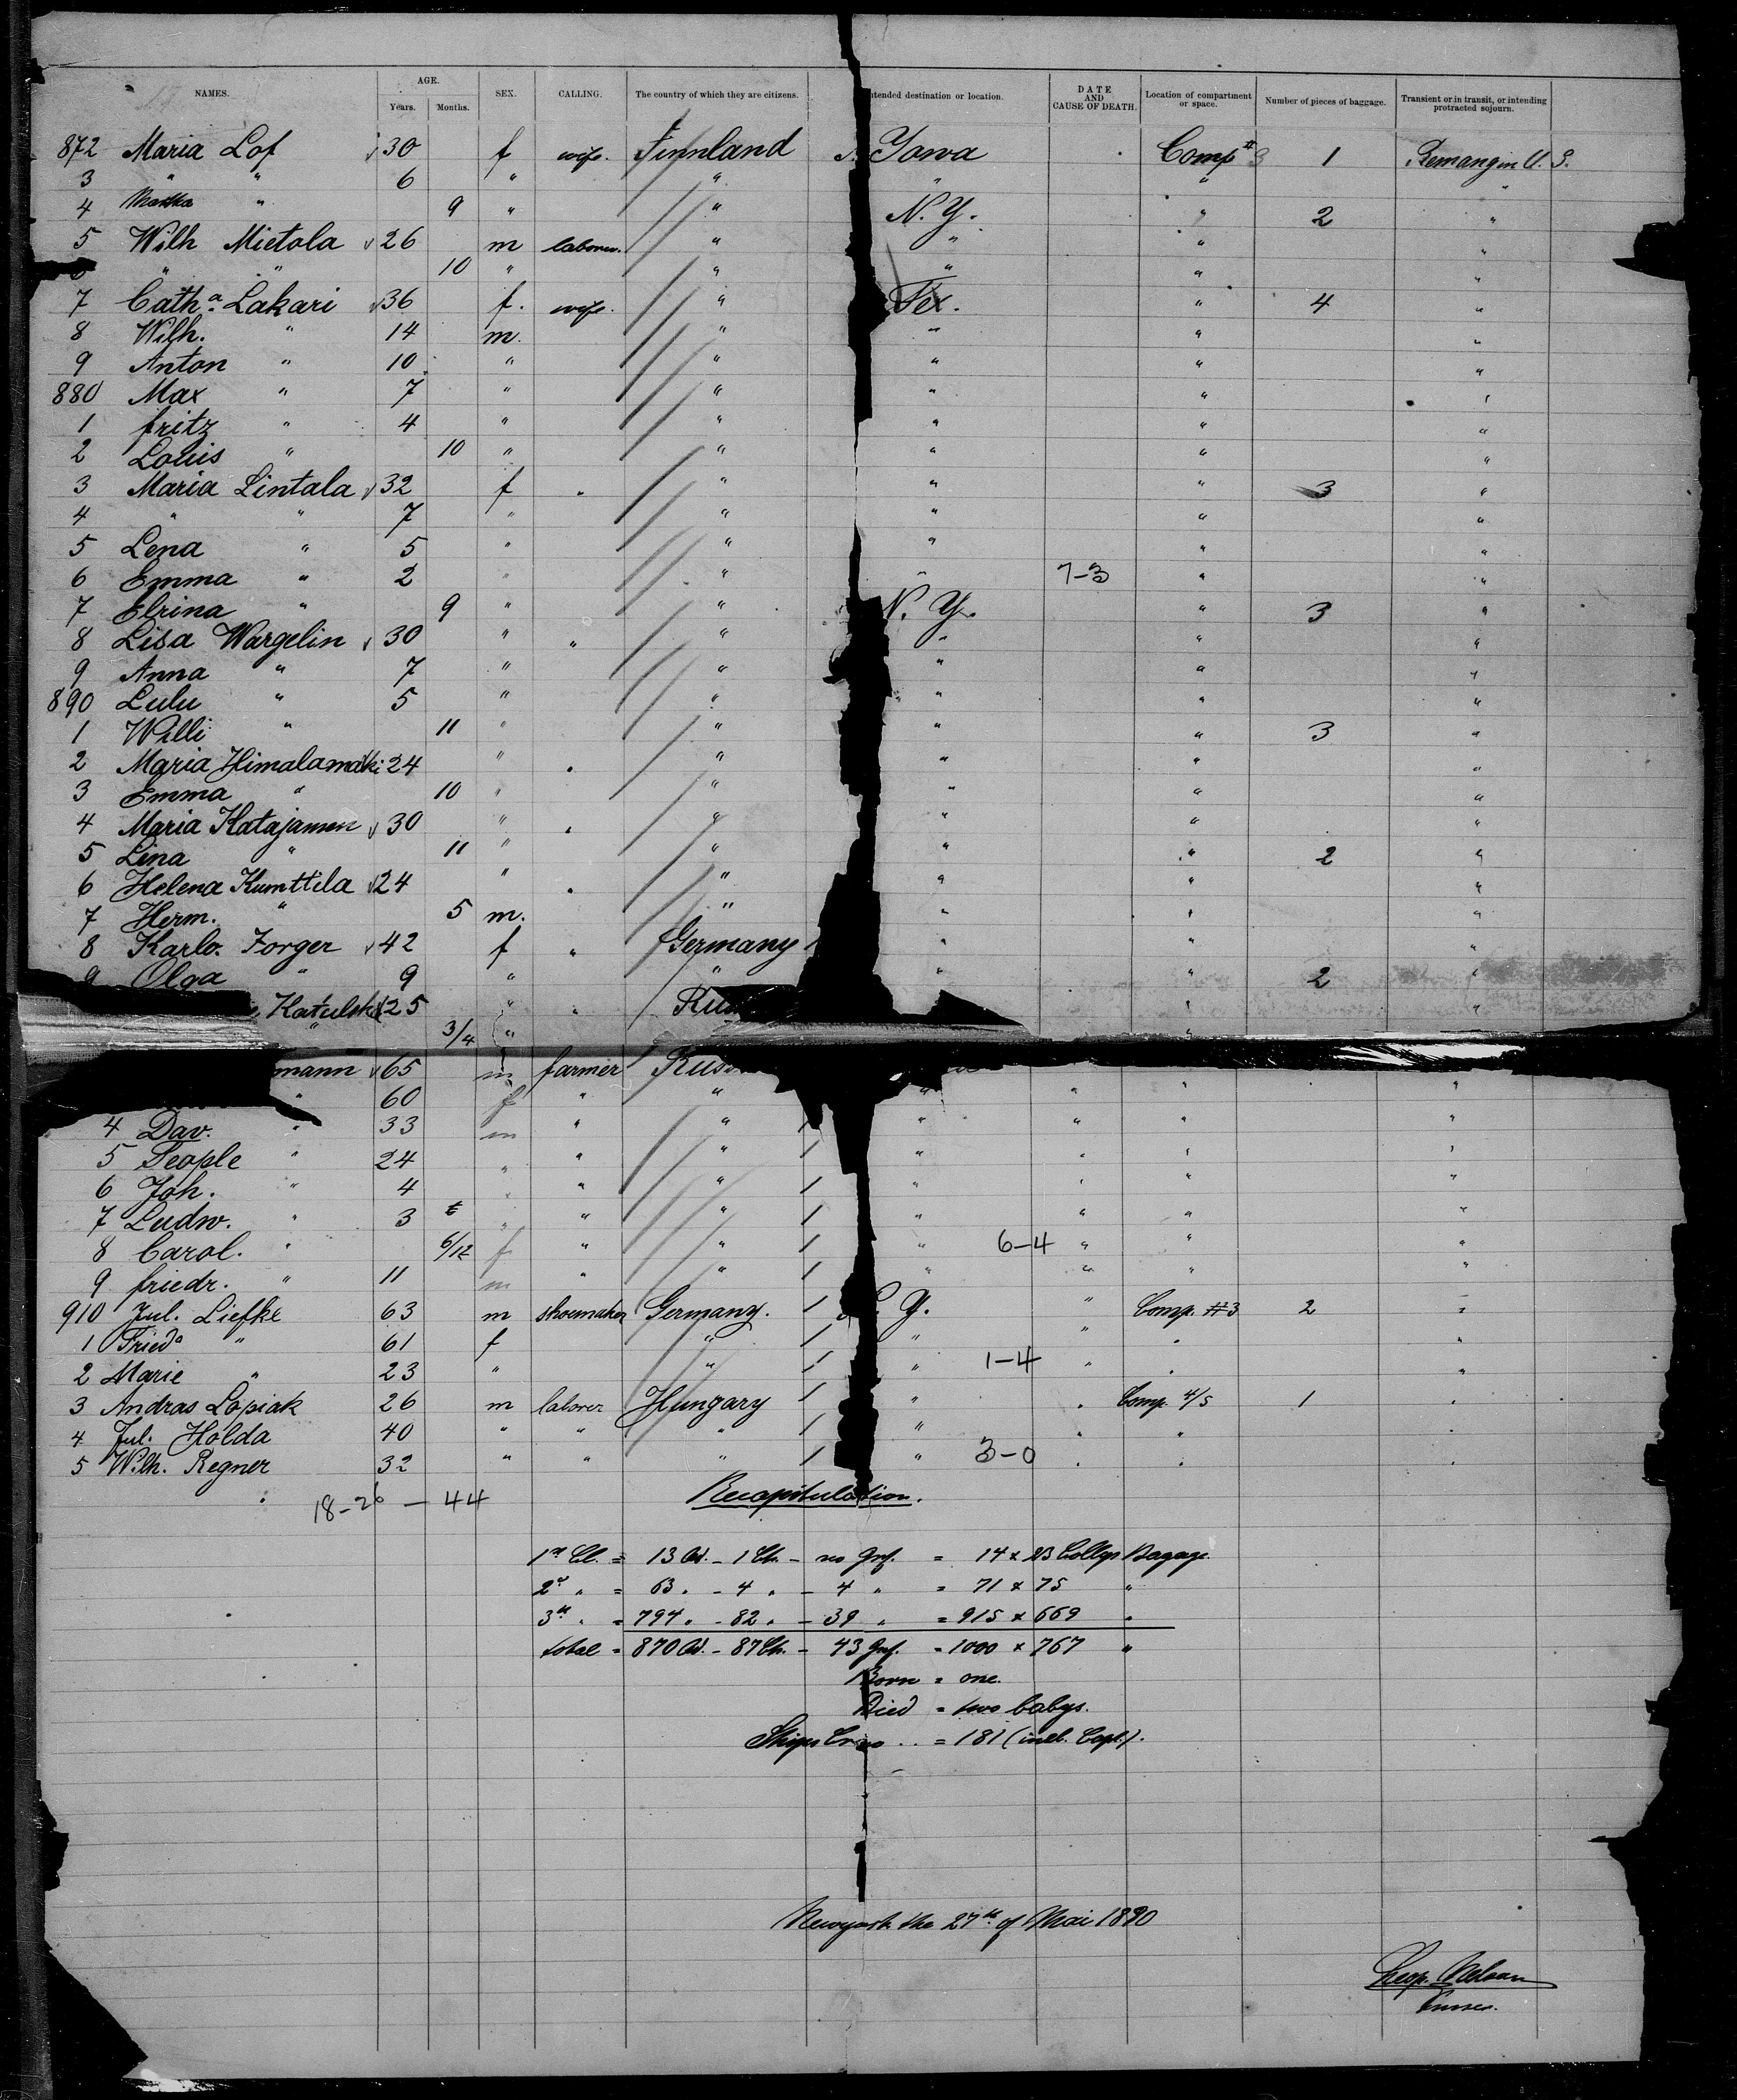 NAMES. AGE. Years. Months. SEX. CALLING. The country of which they are citizens. ntended destination or location. DATE AND CAUSE OF DEATH. Location of compartment or space. Number of pieces of baggage. Transient or in transit, or intending protracted sojourn.
872 Maria Lof 30 f wife. Finnland Yowa Comp # 3 1 Remang in U. S.
3 " " 6 " " " "
4 " 9 " " N. Y. " 2 "
5 Wilh Mietola 26 m laborer. " " " "
" " 10 " " " " "
7 Cath.a Lakari 36 f. wife. " Tex. " 4 "
8 Wilh. " 14 m. " " " "
9 Anton " 10 " " " " "
880 Max " 7 " " " " "
1 fritz " 4 " " " " "
2 Louis " 10 " " " " "
3 Maria Lintala 32 f " " " " 3 "
4 " " 7 " " " " "
5 Lena " 5 " " " " "
6 Emma " 2 " " " 7-3 " "
7 Elrina " 9 " " N. Y. " 3 "
8 Lisa Wargelin 30 " " " " " "
9 Anna " 7 " " " " "
890 Lulu " 5 " " " " "
1 Willi " 11 " " " " 3 "
2 Maria Himalamäki 24 " " " " " "
3 Emma " 10 " " " " "
4 Maria Katajamen 30 " " " " " "
5 Lina " 11 " " " " 2 "
6 Helena Kumttila 24 " " " " " "
7 Herm. " 5 m. " " " "
8 Karlo. Zorger 42 f " Germany " " "
9 Olga " 9 " " " " 2 "
Katulsk 25 " " Rus " "
" 3/4 " "
mann 65 m farmer Russ
" 60 f " " " " " "
4 Dav. " 33 m " " 1 " " " "
5 Seaple " 24 " " " 1 " " " "
6 Joh. " 4 " " " 1 " " " "
7 Ludw. " 3 " " " 1 " " " "
8 Carol. " 6/12 f " " 1 " 6-4 " " "
9 friedr. " 11 m " " 1 " " " "
910 Jul. Liefke 63 m shoemaker Germany. 1 Y. " Comp. #3 2 "
1 Frieda " 61 f " 1 " " " "
2 Marie " 23 " " 1 " 1-4 " " "
3 Andras Lapiak 26 m laborer Hungary 1 " " Comp. 4/5 1 "
4 Jul. Holda 40 " " " 1 " " " "
5 Wilh. Regner 32 " " " 1 " 3-0 " " "
18-26 - 44 Recapitulation.
1st Cl. = 13 Ad. - 1 Ch. - no Inf. = 14 x 23 Collys Bagage.
2d " = 63 " - 4 " - 4 " = 71 x 75 "
3th " = 794 " - 82 " - 39 " = 915 x 669 "
total = 870 Ad. - 87 Ch. - 43 Inf. = 1000 x 767 "
Born = one.
Died = two babys.
Ships Crew .. = 181 (incl. Capt.).
Newyork the 27th of Mai 1890